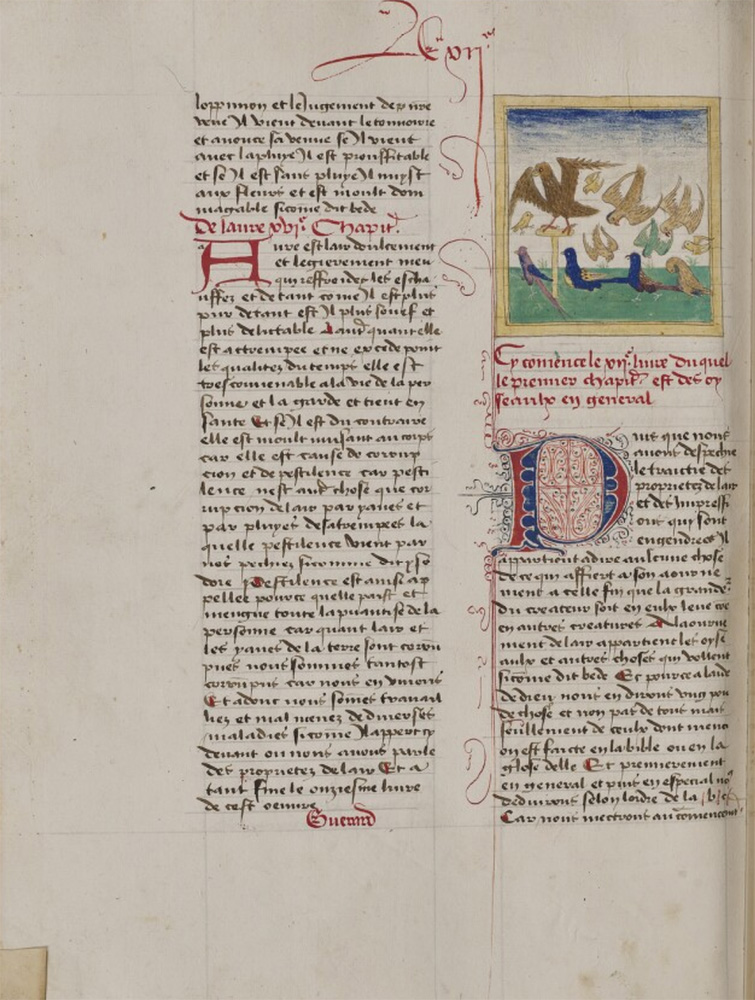 xii
loppinion et le Jugement de n̄re
vene Il vient devant le tonnoirre
et anonce sa venue se Il vient
avec la pluye Il est prouffitable
et se Il est sans pluye Il nuyst
aux fleurs et est moult dom
magable sicōme dit bede
De laure xvi͞e Chapit͞e
Aure est lair doulcement
et legierement meu
qui reffroide les escha
uffez et de tant cōme Il est plus
pur de tant est Il plus souef et
plus delictable quant elle
est actrempee et ne excede point
les qualitez du temps elle est
tres convenable a la vie de la per
sonne et la garde et tient en
sante Et se Il est du contraire
elle est moult nuisant au corps
car elle est cause de corrup
cion et de pestilence car pesti
lence nest chose que cor
rupcion de lair par yaues et
par pluyes desatrempees la
quelle pestilence vient par
nos pechiez sicomme dit yso
dore Pestilence est ainsi ap
pellee pource quelle paist et
mengue toute la puantise de la
personne car quant lair et
les yaues de la terre sont corrū
pues nous sommes tantost
corrūpus car nous en vivons
Et adonc nous sōmes travail
liez et mal menez de diverses
maladies sicōme Il appert cy
devant ou nous avons parle
des proprietez de lair Et a
tant fine le onziesme livre
de cest oeuvre
Guerard
Cy cōmence le xii͞e livre Duquel
le premier chapit͞e est des oy
seaulx en general
Puis que nous
avons despeche
le traictie des
proprietez de lair
et des Impressi
ons qui sont
engendrees Il
appartient a dire aulcune chose
de ce qui affiert a son aourne
ment a celle fin que la grande᷑
du createur soit en eulx levee cōe
en autres creatures A laourne
ment de lair appartient les oyse
aulx et autres choses qui vollent
sicōme dit bede Et pource a laide
de dieu nous en dirons ung pou
de chose et non pas de tous mais
seullement de ceulx dont menci
on est faicte en la bible ou en la
glose delle Et premierement
en general et puis en especial no᷒
dedirons selon lordre de la
Car nous mectrons au cōmencem̄t